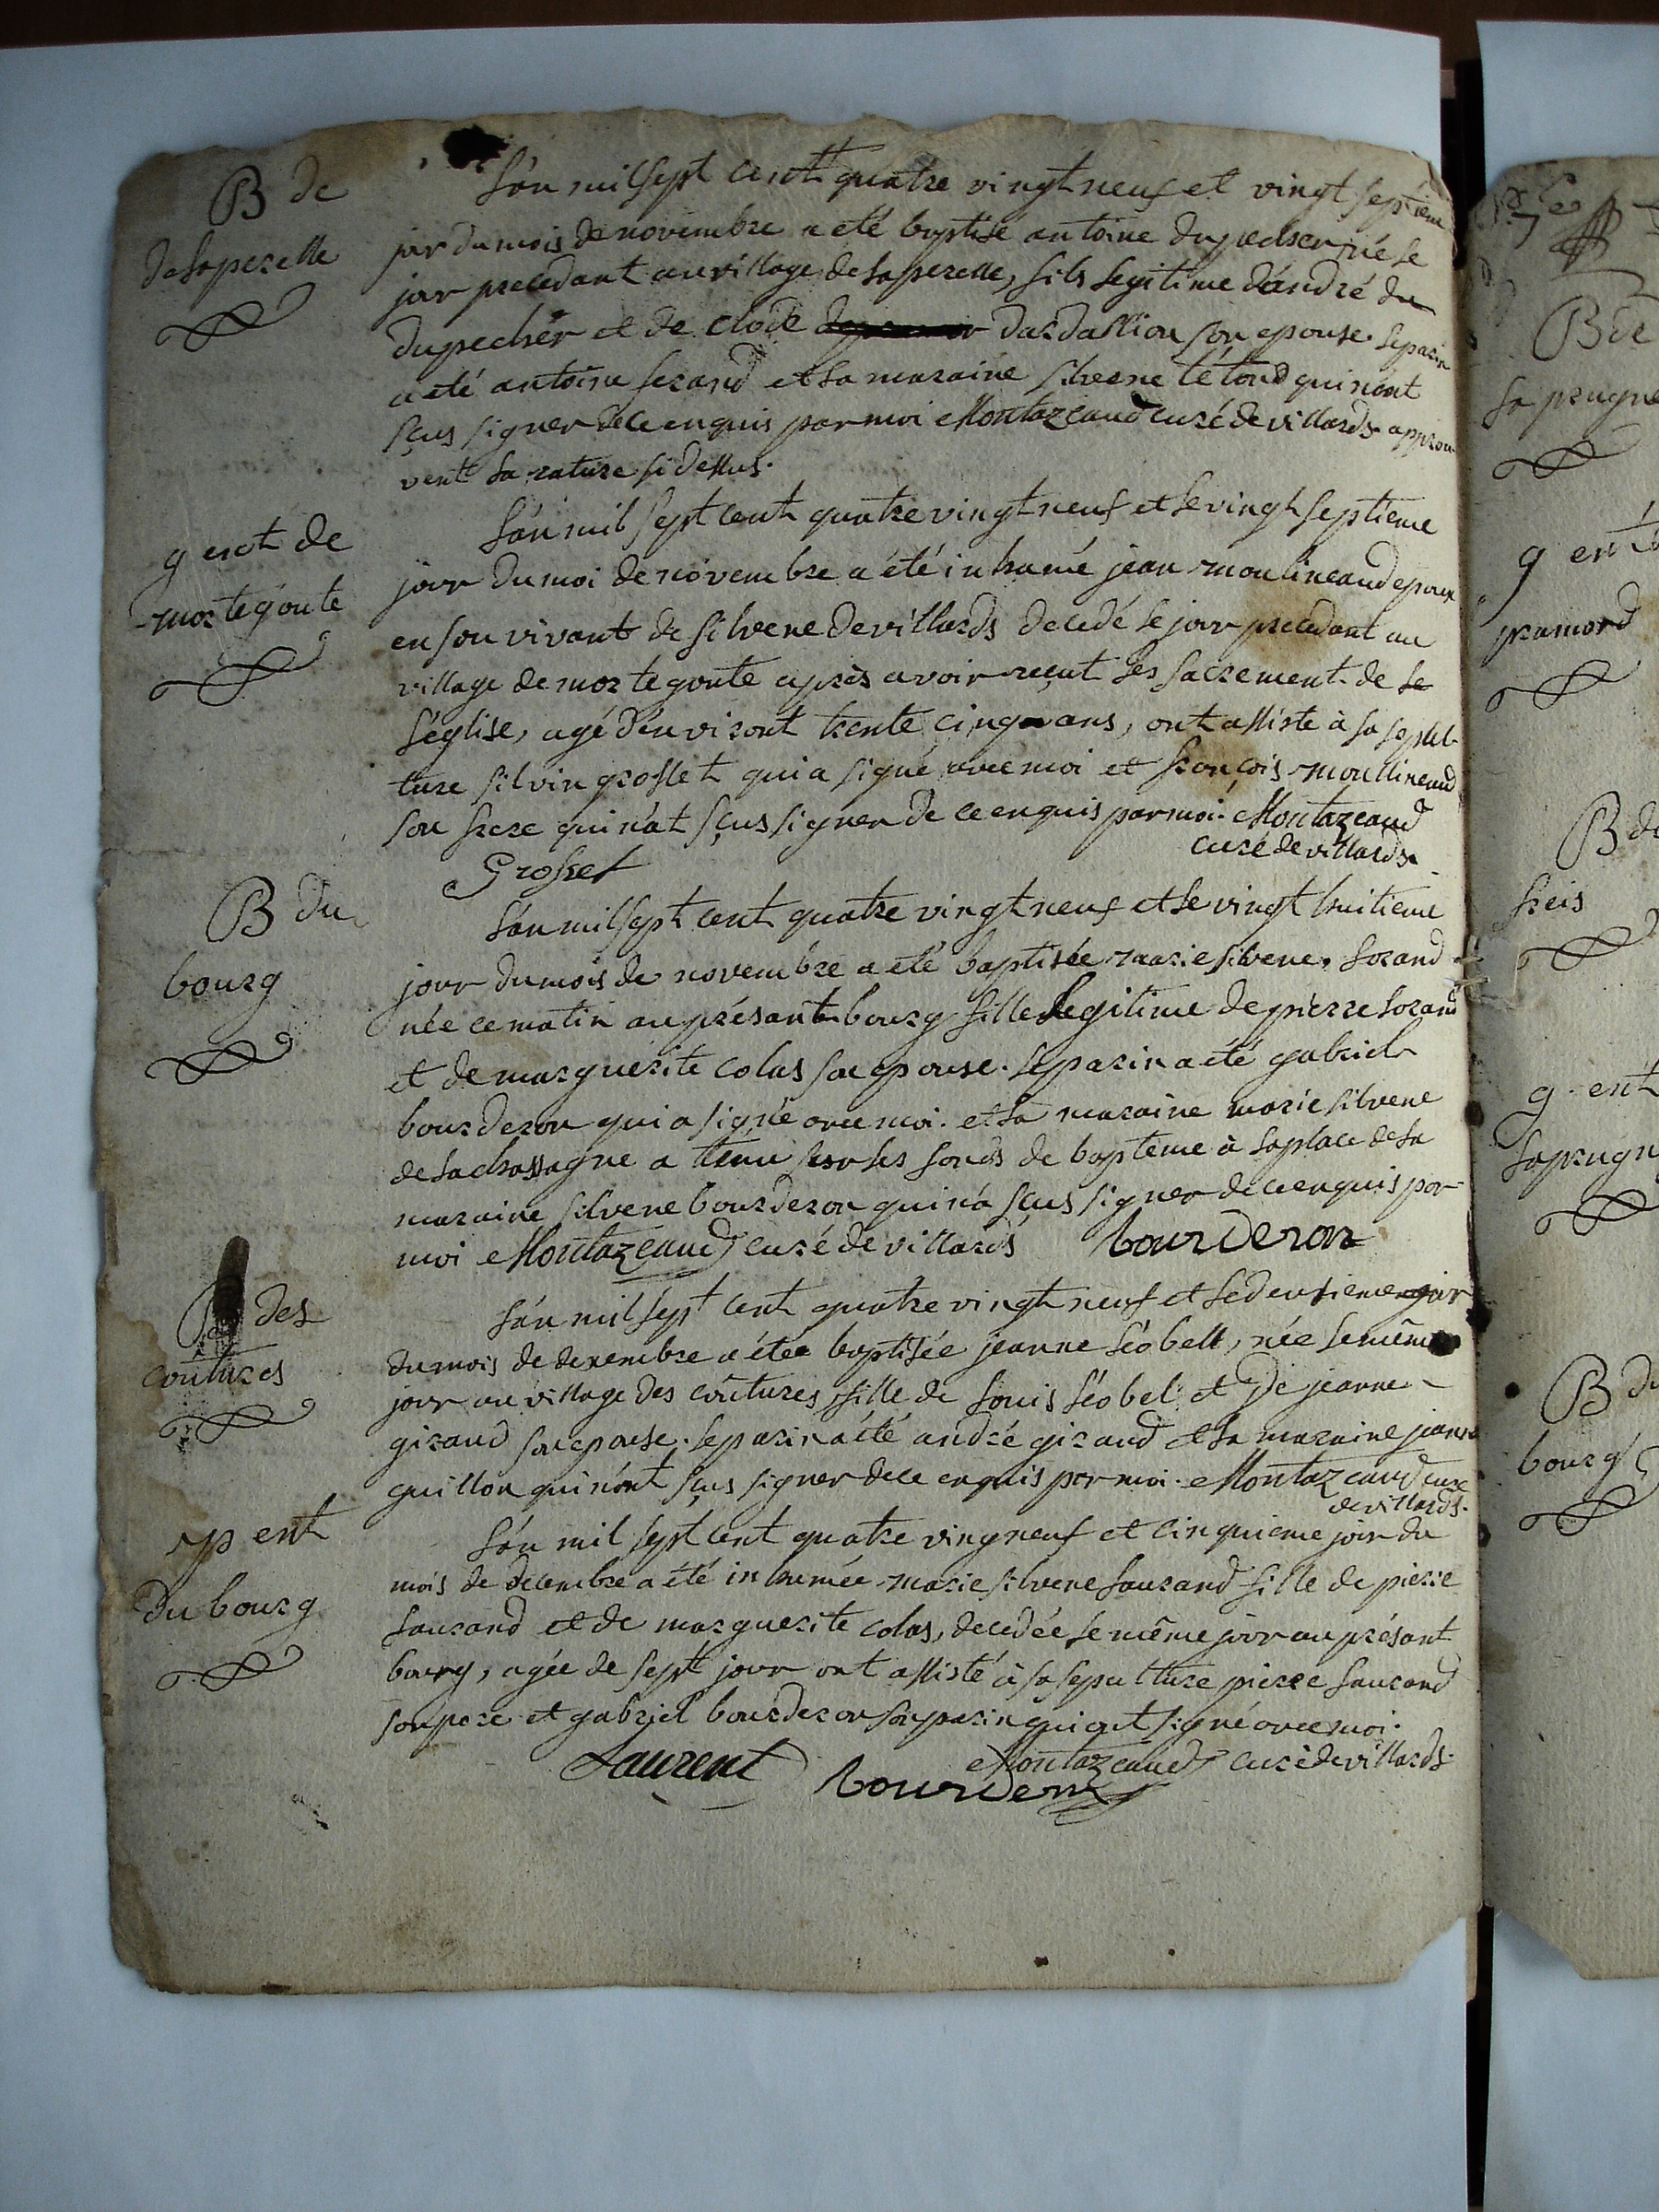 B de
de laperelle
l'an mil sept cent quatre vingt neuf et vingt septieme
jor du mois de novembre a eté baptisé antoine dupecher né le
jor precedant au village de laperelle, fils legitime d'andré du
dupecher et de clode dardallion son epouse. le parin
a eté antoine ferand et la maraine silvene létond qui n'ont
sçus signer de ce enquis par moi Montazeaud curé de villards approu
vent la rature si dessus.
g ent de
mortegoute
l'an mil sept cent quatre vingt neuf et le vingt septieme
jour du moi de novembre a été inhumé jean moulineaud epoux
en son vivant de silvene devillards decedé le jor precedant au
village de mortegoute après avoir reçut les sacrement de le
l'église, agé d'environt trente cinq ans, ont assisté à sa sepul
ture silvin grosset qui a signé avec moi et françois moullineaud
son frere qui n'at sçus signer de ce enquis par moi. Montazeaud
curé de villards.
Grosset
B du
bourg
l'an mil sept cent quatre vingt neuf et le vingt huitieme
jour du mois de novembre a eté baptisée marie silvene lorand
née ce matin au présant bourg fille legitime de pierre lorand
et de marguerite colas son epouse. le parin a été gabriel
bourderon qui a signé avec moi. et la maraine marie silvene
de lachassagne a tenu sur les fonds de baptême à la place de la
maraine silvene bourderon qui n'a sçus signer de ce enquis par
moi Montazeaud curé de villards bourderon
B des
coutures
l'an mil sept cent quatre vingt neuf et le deusieme jor
du mois de decembre a étée baptisée jeanne léobell, née le même
jour au village des coutures fille de louis léobel et de jeanne
giraud son epouse. le parin a été andré giraud et la maraine jeanne
guillon qui n'ont sçus signer de ce enquis par moi. Montazeaud curé
de villards.
p ent
du bourg
l'an mil sept cent quatre ving neuf et cinquieme jour du
mois de decembre a été inhumée marie silvene laurand fille de pierre
laurand et de marguerite colas, decedée le même jour au présant
bourg, agée de sept jour ont assisté à sa sepulture pierre laurand
son pere et gabriel bourderon son parin qui ont signé avec moi.
Montazeaud curé de villards.
Laurent bourderon
B de
la prugne
g ent
pramord
B de
freis
g ent
B du
bourg